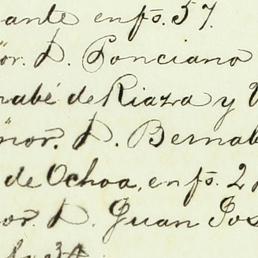 ante en fs. 57.
or. D. Ponciano
rabé de Riaza y V
ñor. D. Bernab
de Ochoa, en fs. 2
or. D. Juan Jos